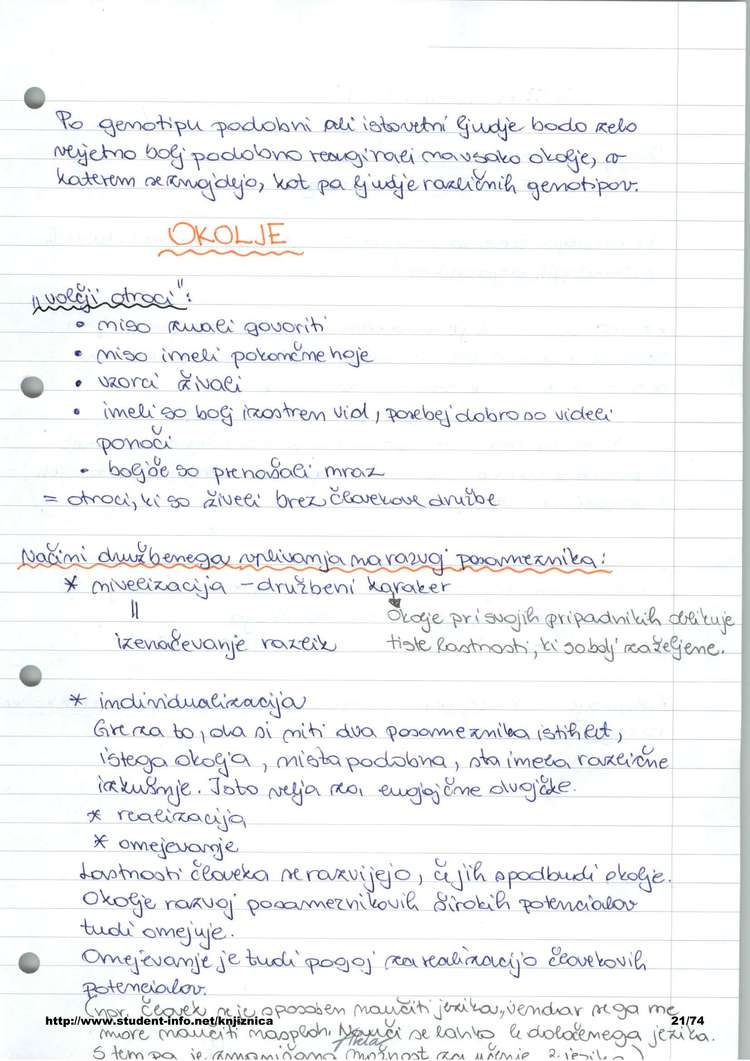 Po genotipu podobni ali istovetni ljudje bodo zelo
verjetno bolj podobno reagirali na vsako okolje, v
katerem se znajdejo, kot pa ljudje različnih genotipov.
OKOLJE
"volčji otroci":
• niso znali govoriti
• niso imeli pokončne hoje
• vzorci živali
• imeli so bolj izostren vid, posebej dobro so videli
ponoči
• boljše so prenašali mraz
= otroci, ki so živeli brez človekove družbe
Načini družbenega vplivanja na razvoj posameznika:
* nivelizacija - družbeni karakter
||
izenačevanje razlik
Okolje pri svojih pripadnikih oblikuje
tiste lastnosti, ki so bolj zaželjene.
* individualizacija
Gre za to, da si niti dva posameznika istih let,
istega okolja, nista podobna, sta imela različne
izkušnje. Isto velja za enojajčne dvojčke.
* realizacija
* omejevanje
Lastnosti človeka se razvijejo, če jih spodbudi okolje.
Okolje razvoj posameznikovih širokih potencialov
tudi omejuje.
Omejevanje je tudi pogoj za realizacijo človekovih
potencialov.
(npr. človek se je sposoben naučiti jezika, vendar se ga ne
http://www.student-info.net/knjiznica
21/74
more naučiti nasploh. Nauči se lahko le določenega jezika.
S tem pa je možnost za učenje 2. jezika)